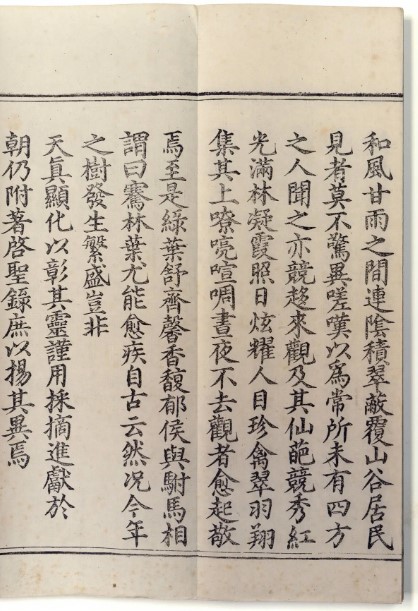 和風甘雨之間連陰積翠蔽覆山谷居民
見者莫不驚異嗟嘆以爲常所未有四方
之人聞之亦競趍來觀及其仙葩競秀紅
光滿林凝霞照日炫耀人目珍禽翠羽翔
集其上嘹亮喧啁晝夜不去觀者愈起敬
焉至是綠葉舒齊馨香馥郁侯與駙馬相
謂曰騫林葉尤能愈疾自古云然况今年
之樹發生繁盛豈非
天眞顯化以彰其靈謹用採摘進獻於
朝仍附著啓聖錄庶以揚其異焉